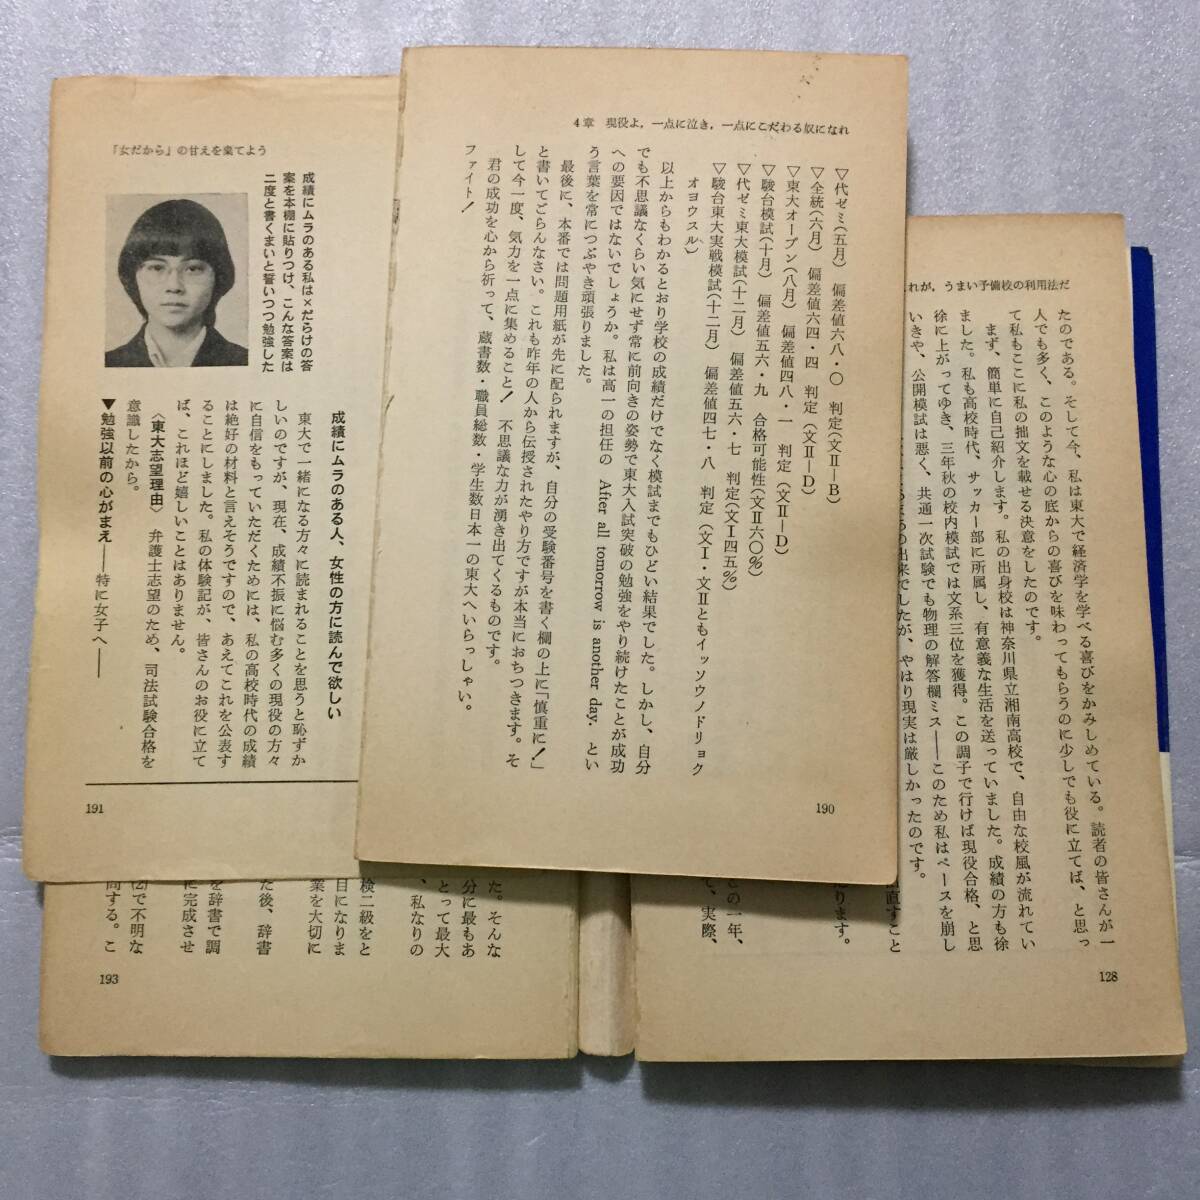 4章 現役よ,一点に泣き,一点にこだわる奴になれ
▽代ゼミ(五月) 偏差値六八・〇 判定(文Ⅱ―B)
▽全統(六月) 偏差値六四・四 判定(文Ⅱ―D)
▽東大オープン(八月) 偏差値四八・一 判定(文Ⅱ―D)
▽駿台模試(十月) 偏差値五六・九 合格可能性(文Ⅱ六〇%)
▽代ゼミ東大模試(十二月) 偏差値五六・七 判定(文Ⅰ四五%)
▽駿台東大実戦模試(十二月) 偏差値四七・八 判定(文Ⅰ・文Ⅱともイッソウノドリョク
オヨウスル)
以上からもわかるとおり学校の成績だけでなく模試までもひどい結果でした。しかし、自分
でも不思議なくらい気にせず常に前向きの姿勢で東大入試突破の勉強をやり続けたことが成功
への要因ではないでしょうか。私は高一の担任の After all tomorrow is another day. とい
う言葉を常につぶやき頑張りました。
最後に、本番では問題用紙が先に配られますが、自分の受験番号を書く欄の上に「慎重に!」
と書いてごらんなさい。これも昨年の人から伝授されたやり方ですが本当におちつきます。そ
して今一度、気力を一点に集めること! 不思議な力が湧き出てくるものです。
君の成功を心から祈って、蔵書数・職員総数・学生数日本一の東大へいらっしゃい。
ファイト!
190
「女だから」の甘えを棄てよう
成績にムラのある私は×だらけの答
案を本棚に貼りつけ、こんな答案は
二度と書くまいと誓いつつ勉強した
成績にムラのある人、女性の方に読んで欲しい
東大で一緒になる方々に読まれることを思うと恥ずか
しいのですが、現在、成績不振に悩む多くの現役の方々
に自信をもっていただくためには、私の高校時代の成績
は絶好の材料と言えそうですので、あえてこれを公表す
ることにしました。私の体験記が、皆さんのお役に立て
ば、これほど嬉しいことはありません。
〈東大志望理由〉 弁護士志望のため、司法試験合格を
意識したから。
▼勉強以前の心がまえ――特に女子へ――
191
れが,うまい予備校の利用法だ
たのである。そして今、私は東大で経済学を学べる喜びをかみしめている。読者の皆さんが一
人でも多く、このような心の底からの喜びを味わってもらうのに少しでも役に立てば、と思っ
て私もここに私の拙文を載せる決意をしたのです。
まず、簡単に自己紹介します。私の出身校は神奈川県立湘南高校で、自由な校風が流れてい
ました。私も高校時代、サッカー部に所属し、有意義な生活を送っていました。成績の方も徐
徐に上がってゆき、三年秋の校内模試では文系三位を獲得。この調子で行けば現役合格、と思
いきや、公開模試は悪く、共通一次試験でも物理の解答欄ミス――このため私はペースを崩し
の出来でしたが、やはり現実は厳しかったのです。
直すこと
ります。
この一年、
て、実際、
128
た。そんな
分に最もあ
とって最大
、私なりの
検二級をと
目になりま
業を大切に
た後、辞書
を辞書で調
に完成させ
(2)で不明な
問する。こ
193